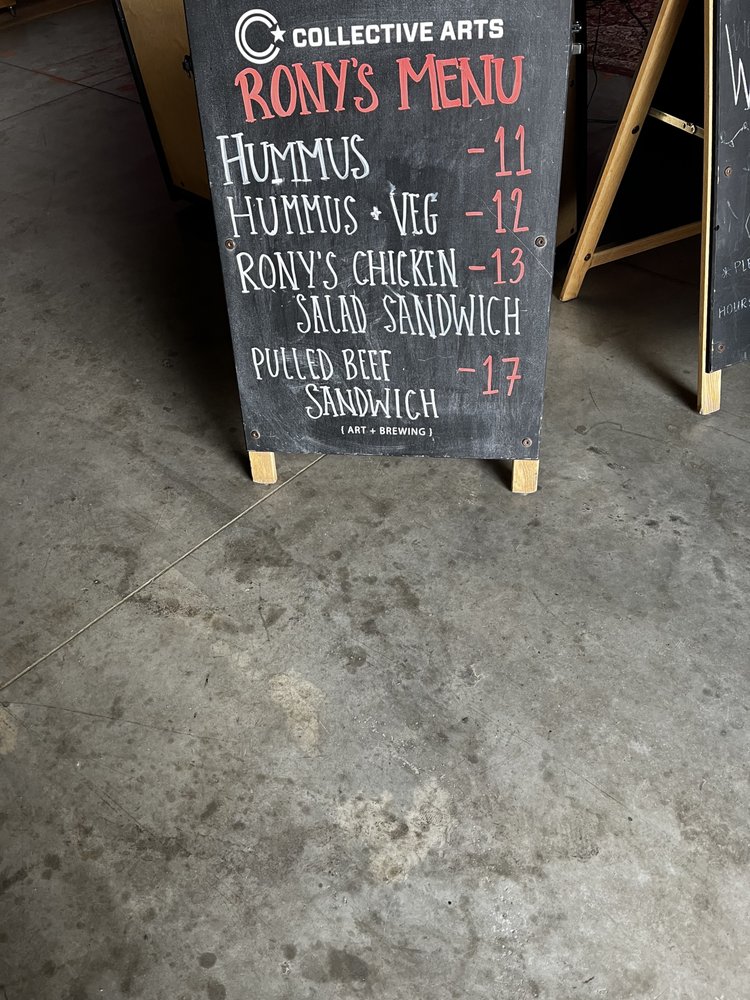 COLLECTIVE ARTS
RONY'S MENU
HUMMUS -11
HUMMUS + VEG -12
RONY'S CHICKEN -13
SALAD SANDWICH
PULLED BEEF -17
SANDWICH
{ ART + BREWING }
W
HOURS